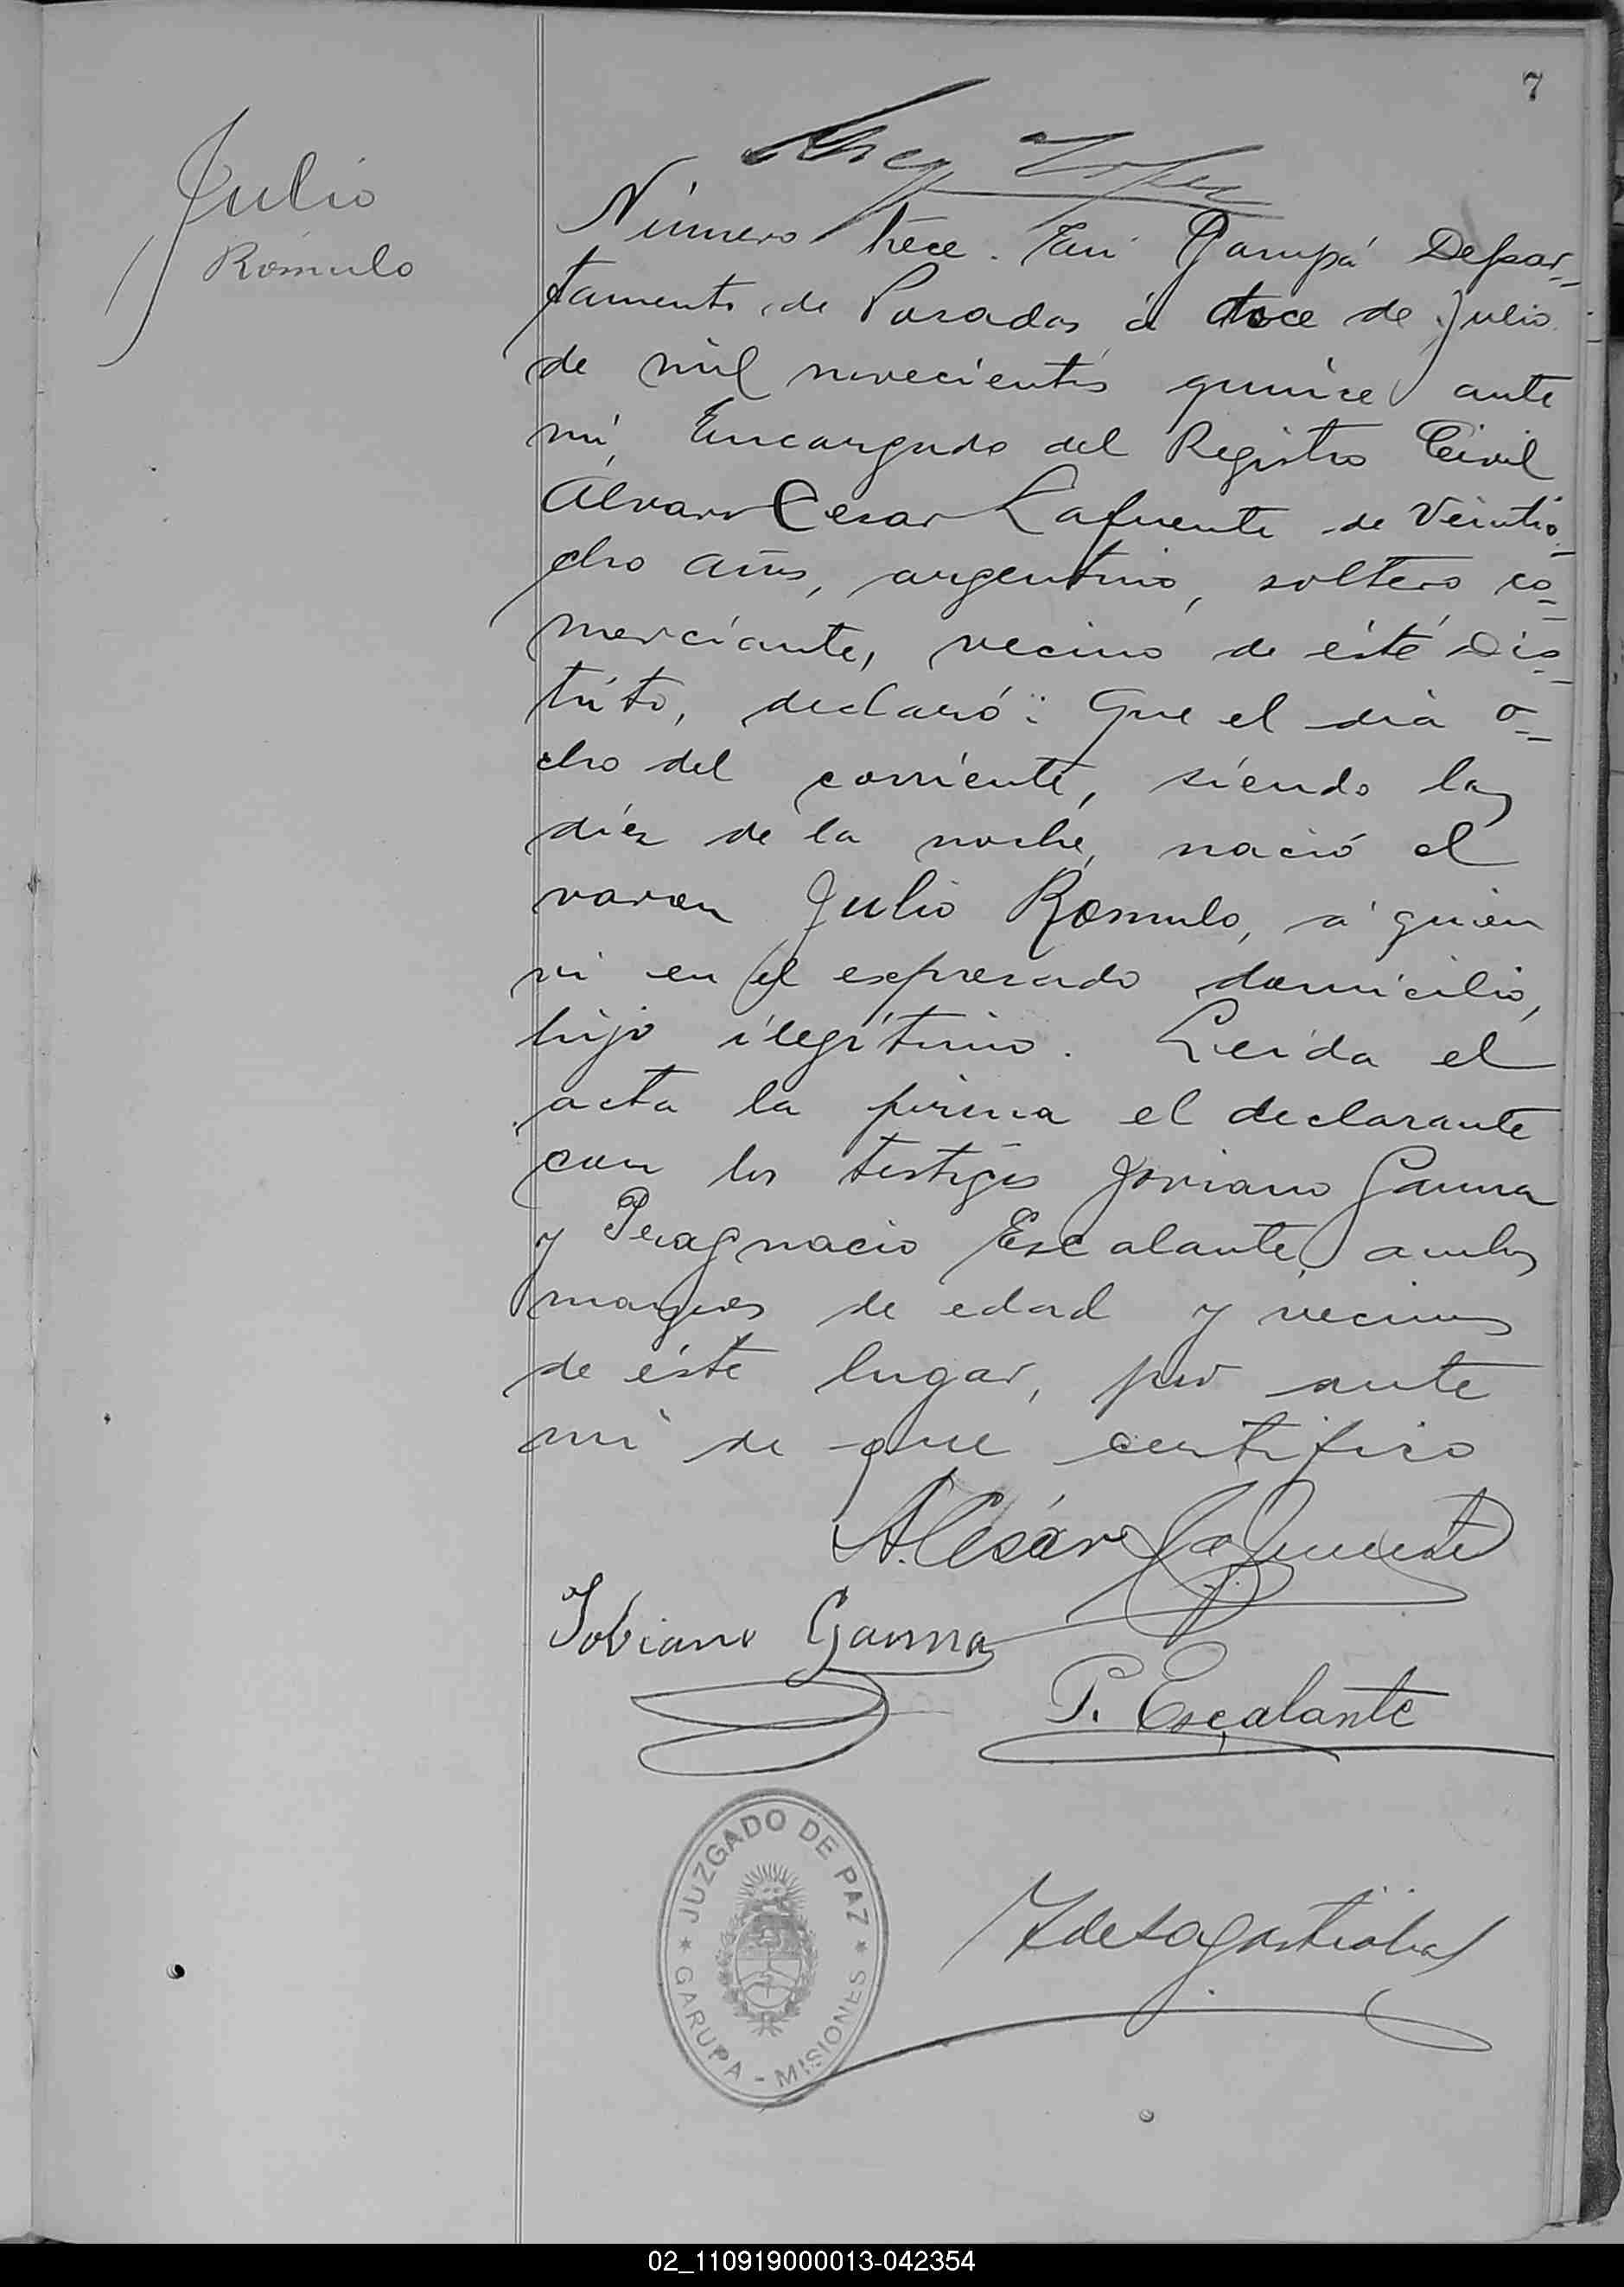 7
Julio
Rómulo
Número trece. En Garupá Depar-
tamento de Posadas á doce de Julio
de mil novecientos quince ante
mi, Encargado del Registro Civil
Alvaro Cesar Lafuente de Veintio-
cho años, argentino, soltero, co-
merciante, vecino de éste Dis-
trito, declaró: Que el día o-
cho del corriente, siendo las
diez de la noche, nació el
varon Julio Romulo, á quien
vi en el expresado domicilio,
hijo ilegítimo. Leida el
acta la firma el declarante
con los testigos Joviano Gauna
y Escalante, ambos
mayores de edad y vecinos
de éste lugar, por ante
mi de que certifico
A. César Lafuente
Jobiano Gauna
P. Escalante
JUZGADO DE PAZ
GARUPA - MISIONES
02_110919000013-042354